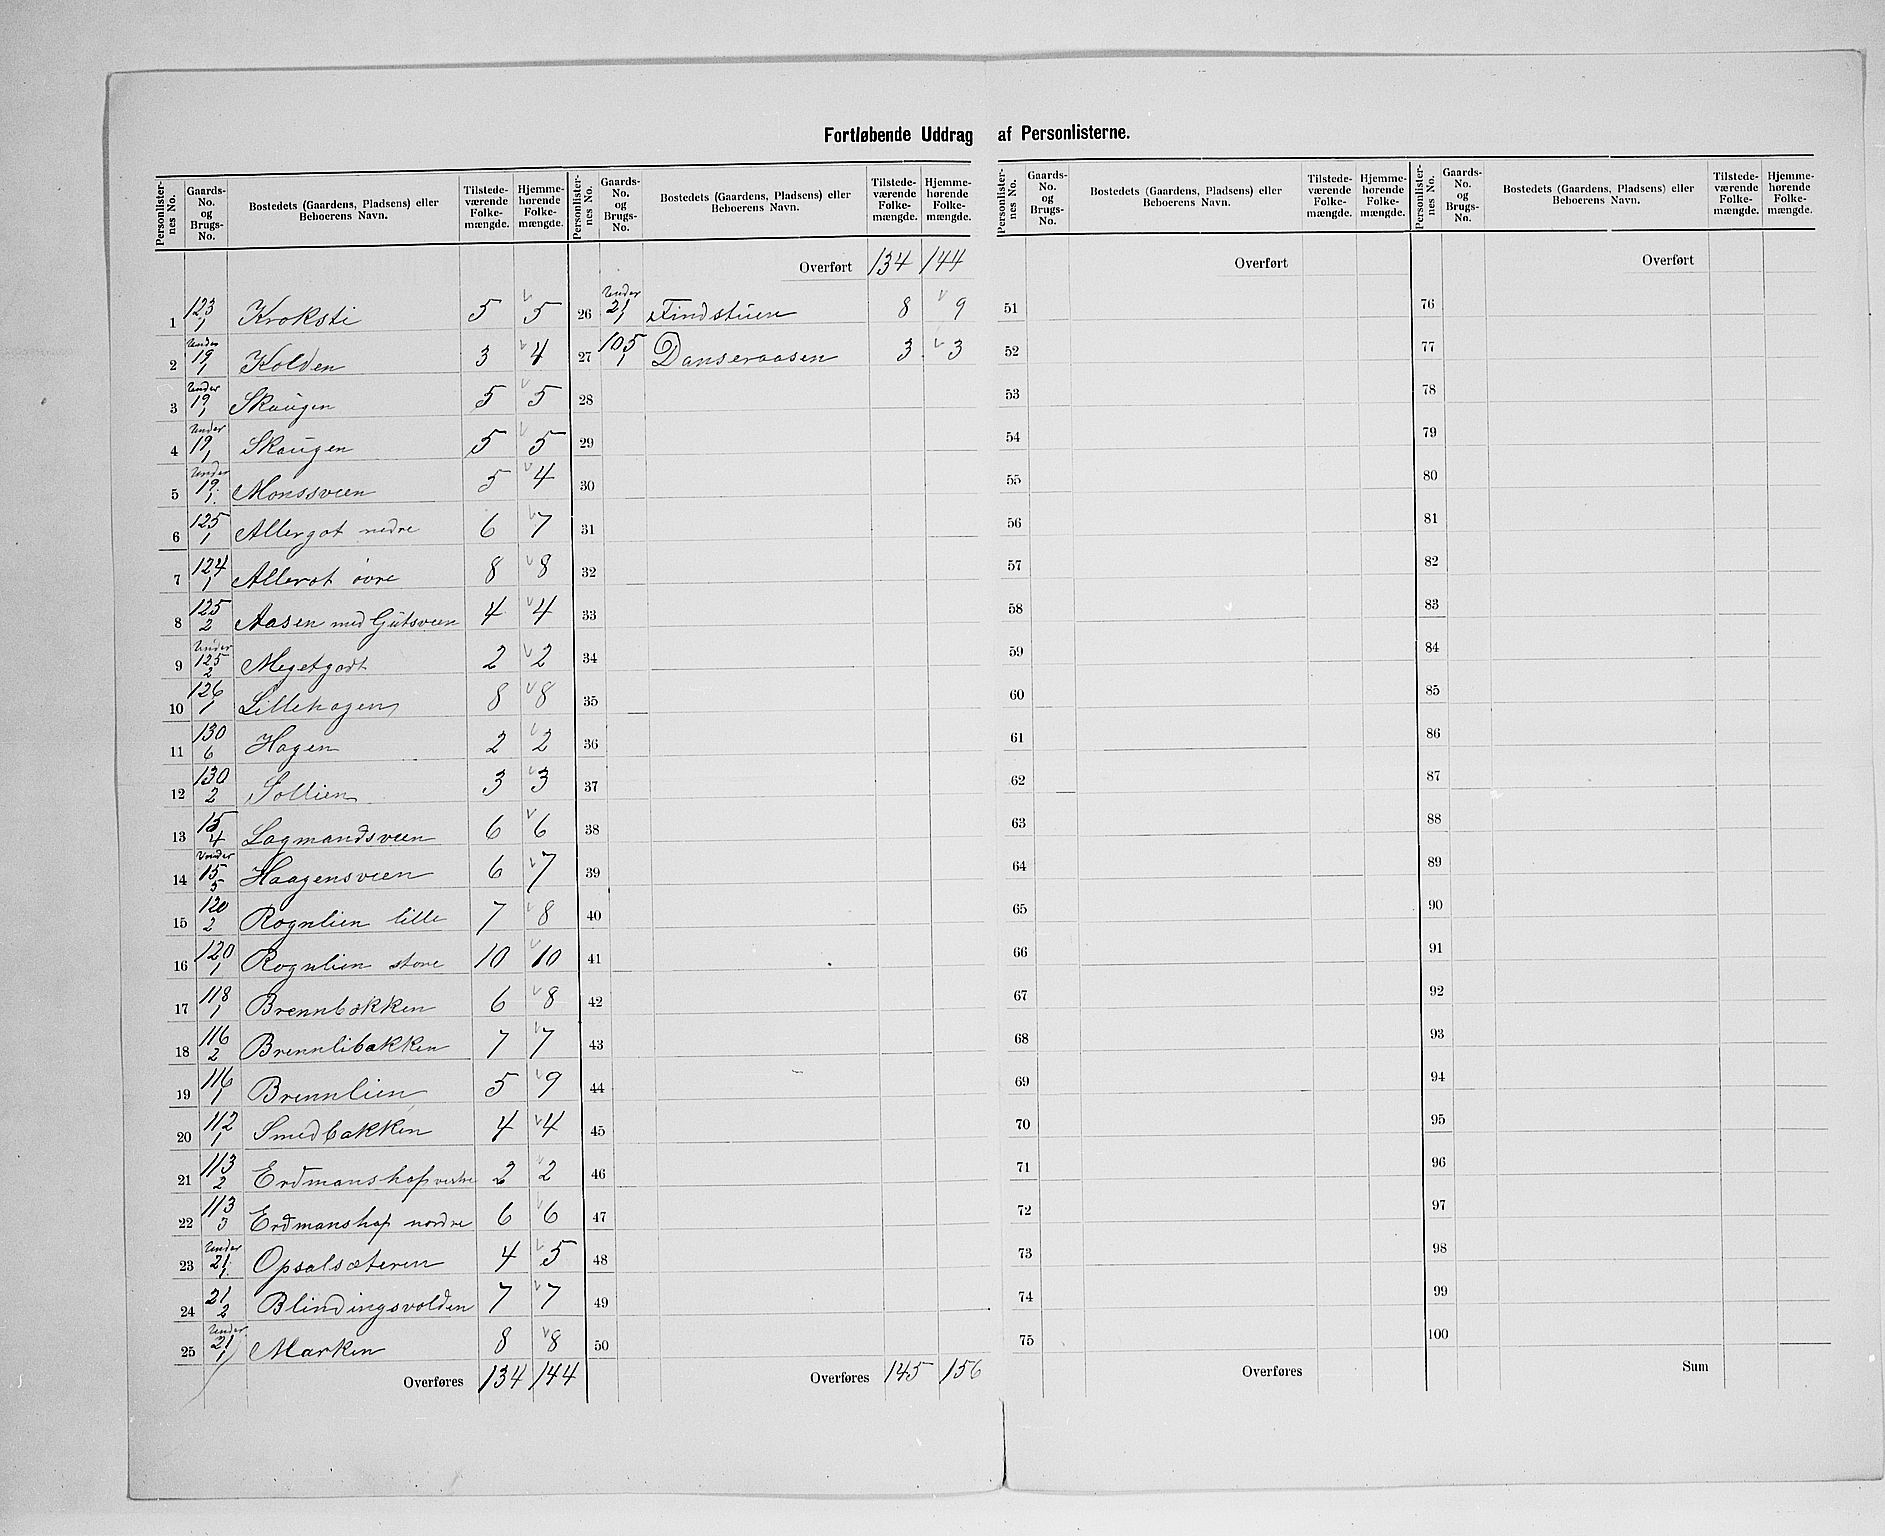 Fortløbende Uddrag af Personlisterne.
Personlisternes No. | Gaards-No. og Brugs-No. | Bostedets (Gaardens, Pladsens) eller Beboerens Navn. | Tilstedeværende Folkemængde. | Hjemmehørende Folkemængde.
1 | 123/1 | Kroksti | 5 | 5
2 | Under 19/1 | Kolden | 3 | 4
3 | Under 19/1 | Skaugen | 5 | 5
4 | Under 19/1 | Skaugen | 5 | 5
5 | Under 19/1 | Monssveen | 5 | 4
6 | 125/1 | Allergot nedre | 6 | 7
7 | 124/1 | Allerot øvre | 8 | 8
8 | 125/2 | Aasen med Gutsveen | 4 | 4
9 | Under 125/2 | Megetgodt | 2 | 2
10 | 126/1 | Lillehagen | 8 | 8
11 | 130/6 | Hagen | 2 | 2
12 | 130/2 | Sollien | 3 | 3
13 | 15/4 | Lagmandsveen | 6 | 6
14 | Under 15/5 | Haagensveen | 6 | 7
15 | 120/2 | Rognlien lille | 7 | 8
16 | 120/1 | Rognlien store | 10 | 10
17 | 118/1 | Brennbakken | 6 | 8
18 | 116/2 | Brennlibakken | 7 | 7
19 | 116/1 | Brennlien | 5 | 9
20 | 112/1 | Smedbakken | 4 | 4
21 | 113/2 | Erdmanshap vestre | 2 | 2
22 | 113/3 | Erdmanshap nordre | 6 | 6
23 | Under 21/1 | Opsalsæteren | 4 | 5
24 | 21/2 | Blindingsvolden | 7 | 7
25 | Under 21/1 | Marken | 8 | 8
Overføres | 134 | 144
Personlisternes No. | Gaards-No. og Brugs-No. | Bostedets (Gaardens, Pladsens) eller Beboerens Navn. | Tilstedeværende Folkemængde. | Hjemmehørende Folkemængde.
Overført | 134 | 144
26 | Under 21/1 | Findstuen | 8 | 9
27 | 105/1 | Danseraasen | 3 | 3
28
29
30
31
32
33
34
35
36
37
38
39
40
41
42
43
44
45
46
47
48
49
50
Overføres | 145 | 156
Personlisternes No. | Gaards-No. og Brugs-No. | Bostedets (Gaardens, Pladsens) eller Beboerens Navn. | Tilstedeværende Folkemængde. | Hjemmehørende Folkemængde.
Overført
51
52
53
54
55
56
57
58
59
60
61
62
63
64
65
66
67
68
69
70
71
72
73
74
75
Overføres
Personlisternes No. | Gaards-No. og Brugs-No. | Bostedets (Gaardens, Pladsens) eller Beboerens Navn. | Tilstedeværende Folkemængde. | Hjemmehørende Folkemængde.
Overført
76
77
78
79
80
81
82
83
84
85
86
87
88
89
90
91
92
93
94
95
96
97
98
99
100
Sum